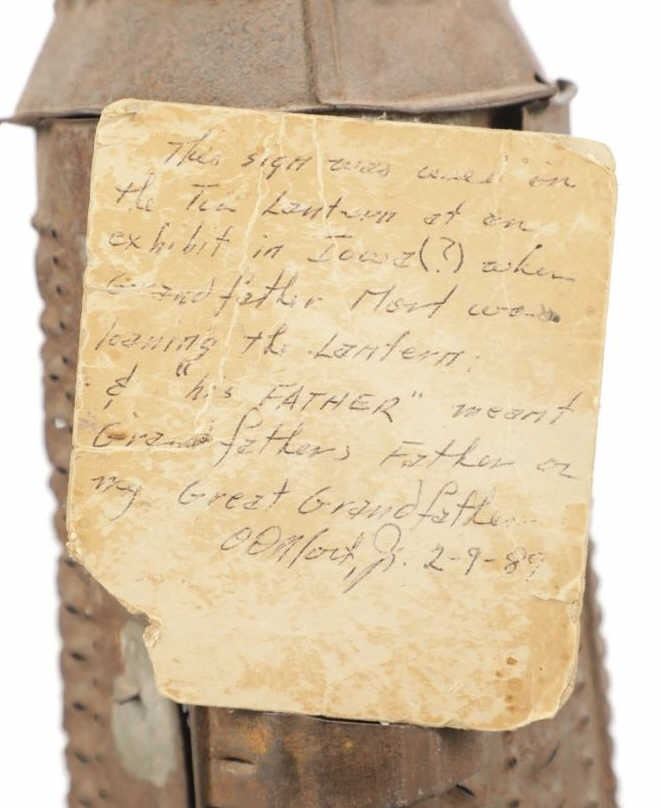 This sign was used on
the Tin Lantern at an
exhibit in Iowa(?) when
Grandfather Mort was
loaning the Lantern.
& "his FATHER" meant
Grandfathers Father or
my Great Grandfather
Jr. 2-9-89